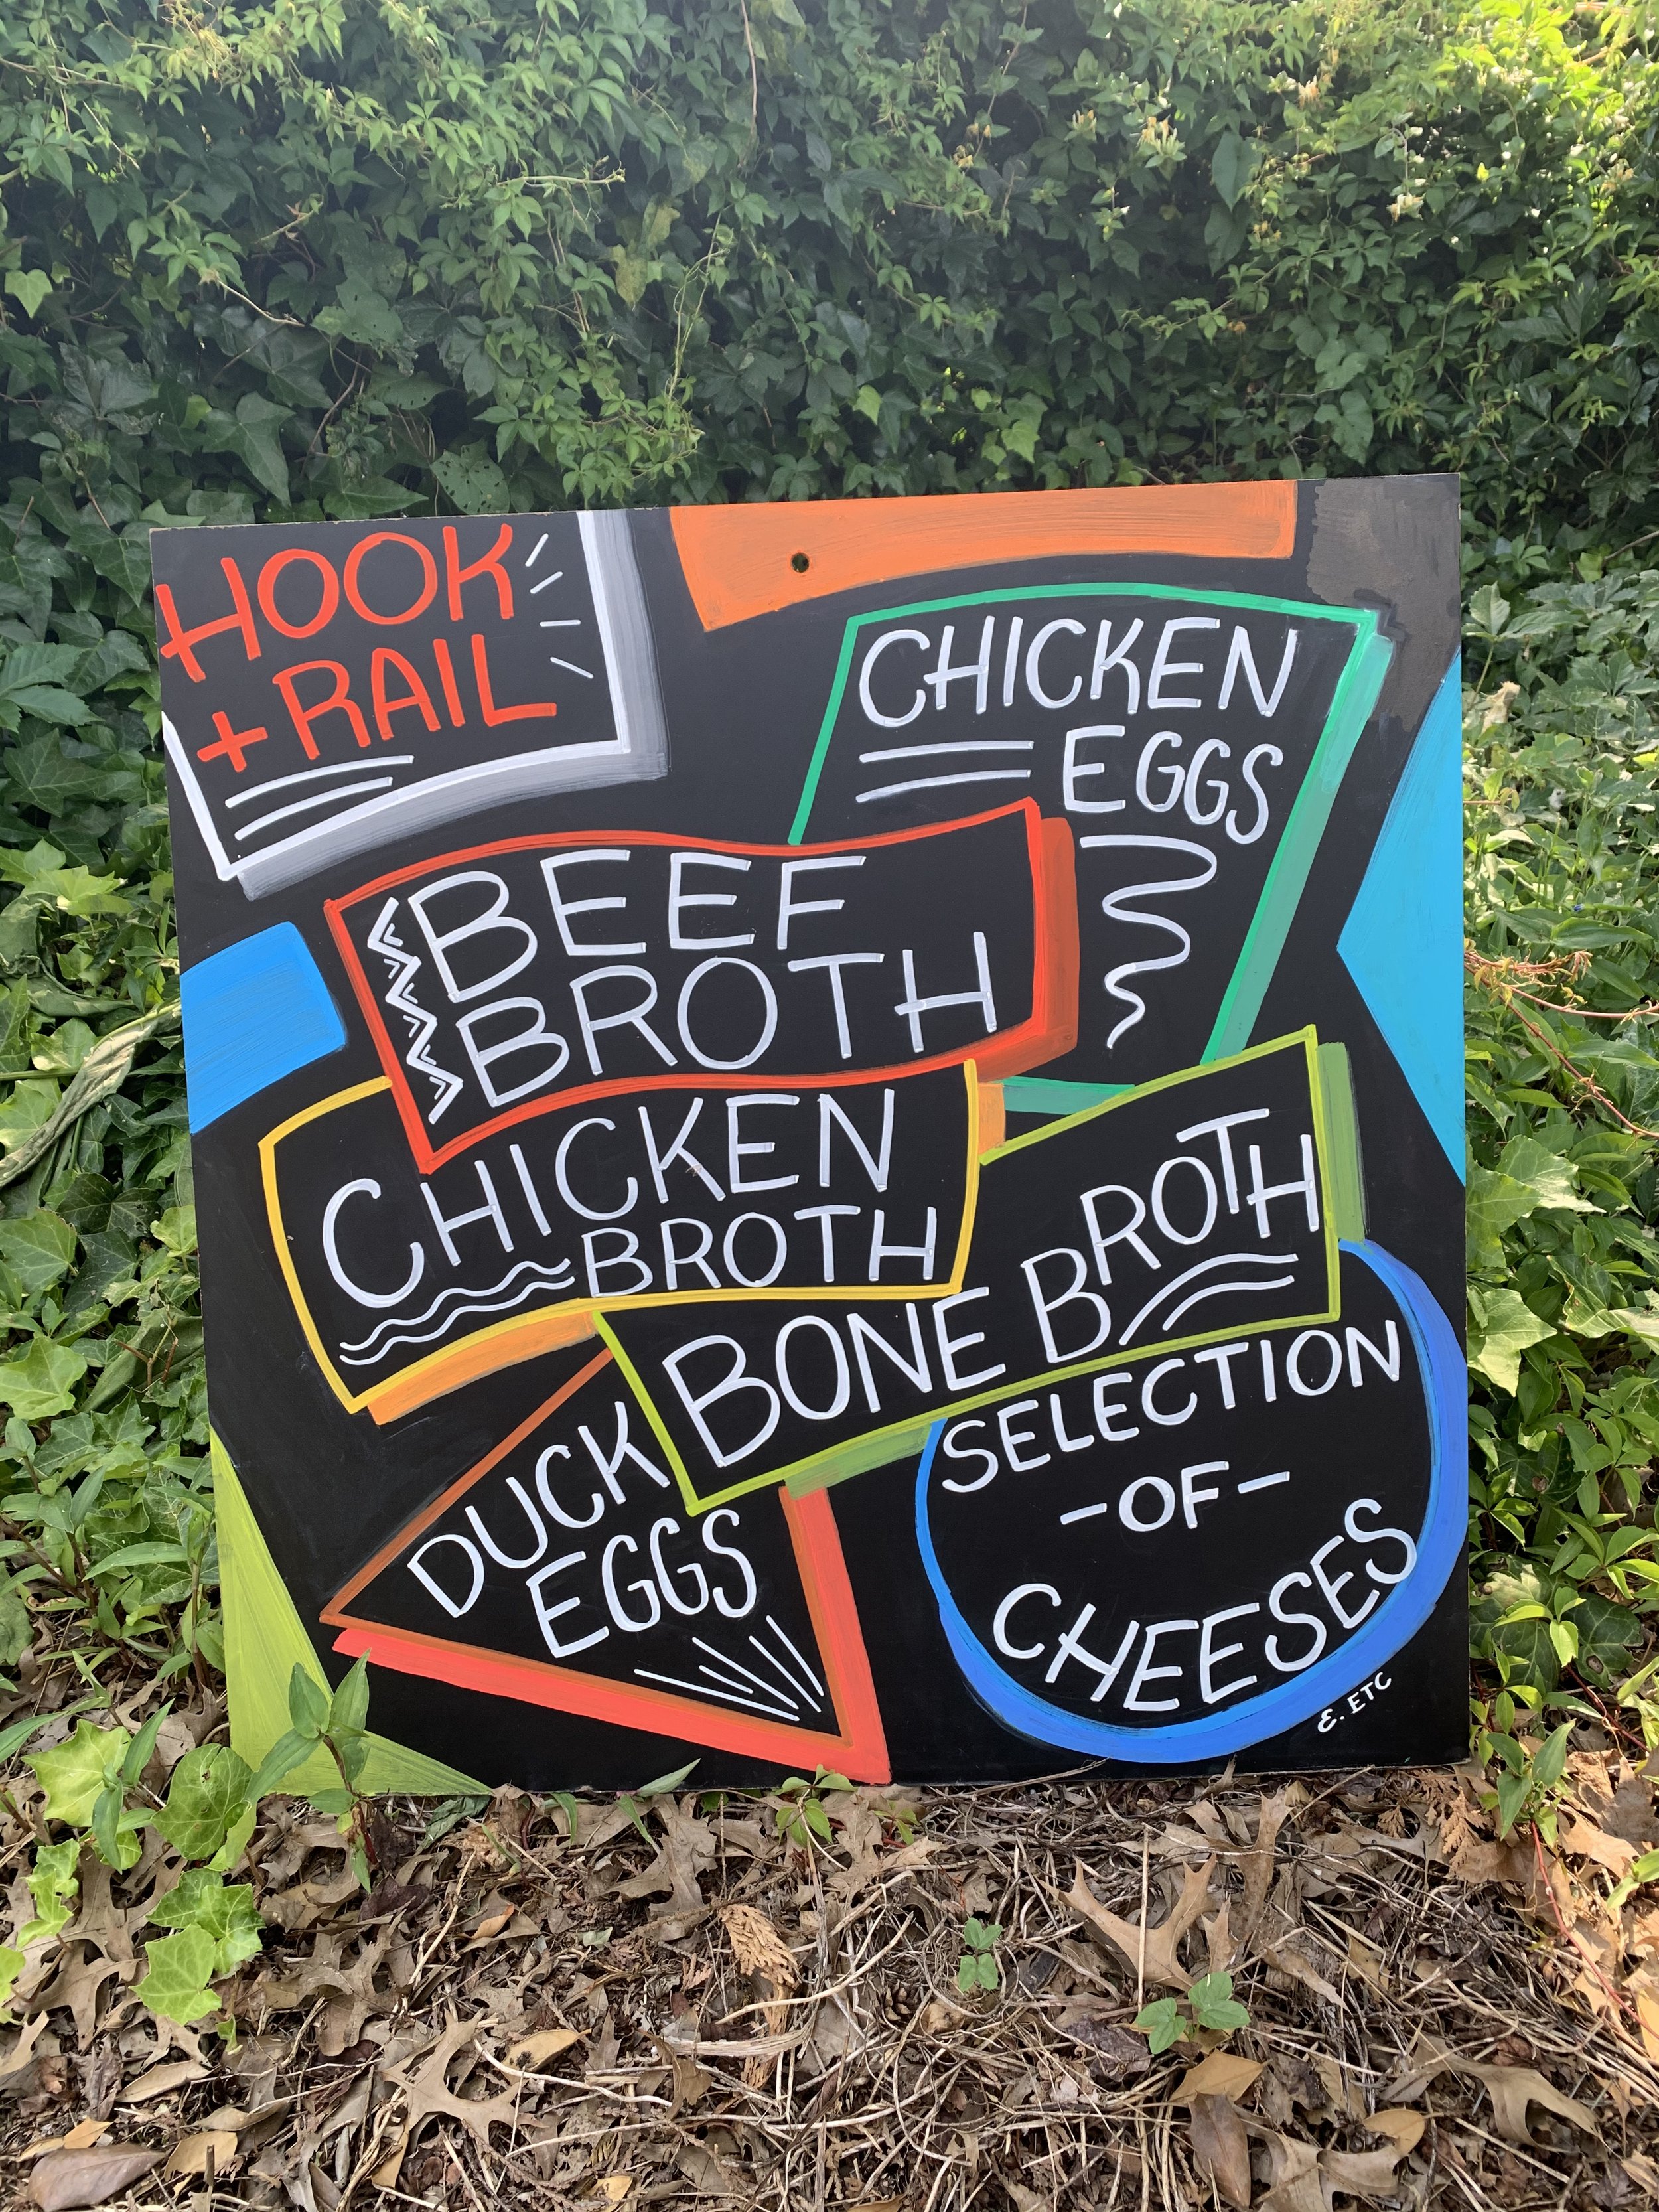 HOOK
+ RAIL
CHICKEN
EGGS
BEEF
BROTH
CHICKEN
BROTH
BONE BROTH
DUCK
EGGS
SELECTION
-OF-
CHEESES
E. ETC